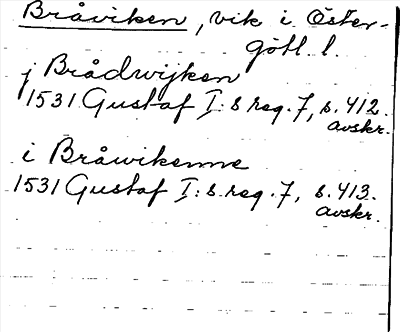 Bråviken, vik i Öster-
götl. l.
j Brådwijken
1531 Gustaf I:s reg. 7, s. 412.
avskr.
i Bråwikenne
1531 Gustaf I:s reg. 7, s. 413.
avskr.